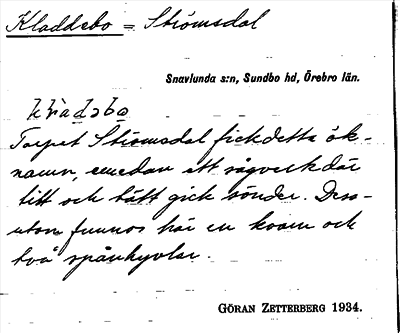 Kladdebo = Strömsdal
Snavlunda s:n, Sundbo hd, Örebro län.
Torpet Strömsdal fick detta ök-
namn, emedan ett sågverk där
titt och tätt gick sönder. Dess-
utom funnos här en kvarn och
två spånhyvlar.
GÖRAN ZETTERBERG 1934.